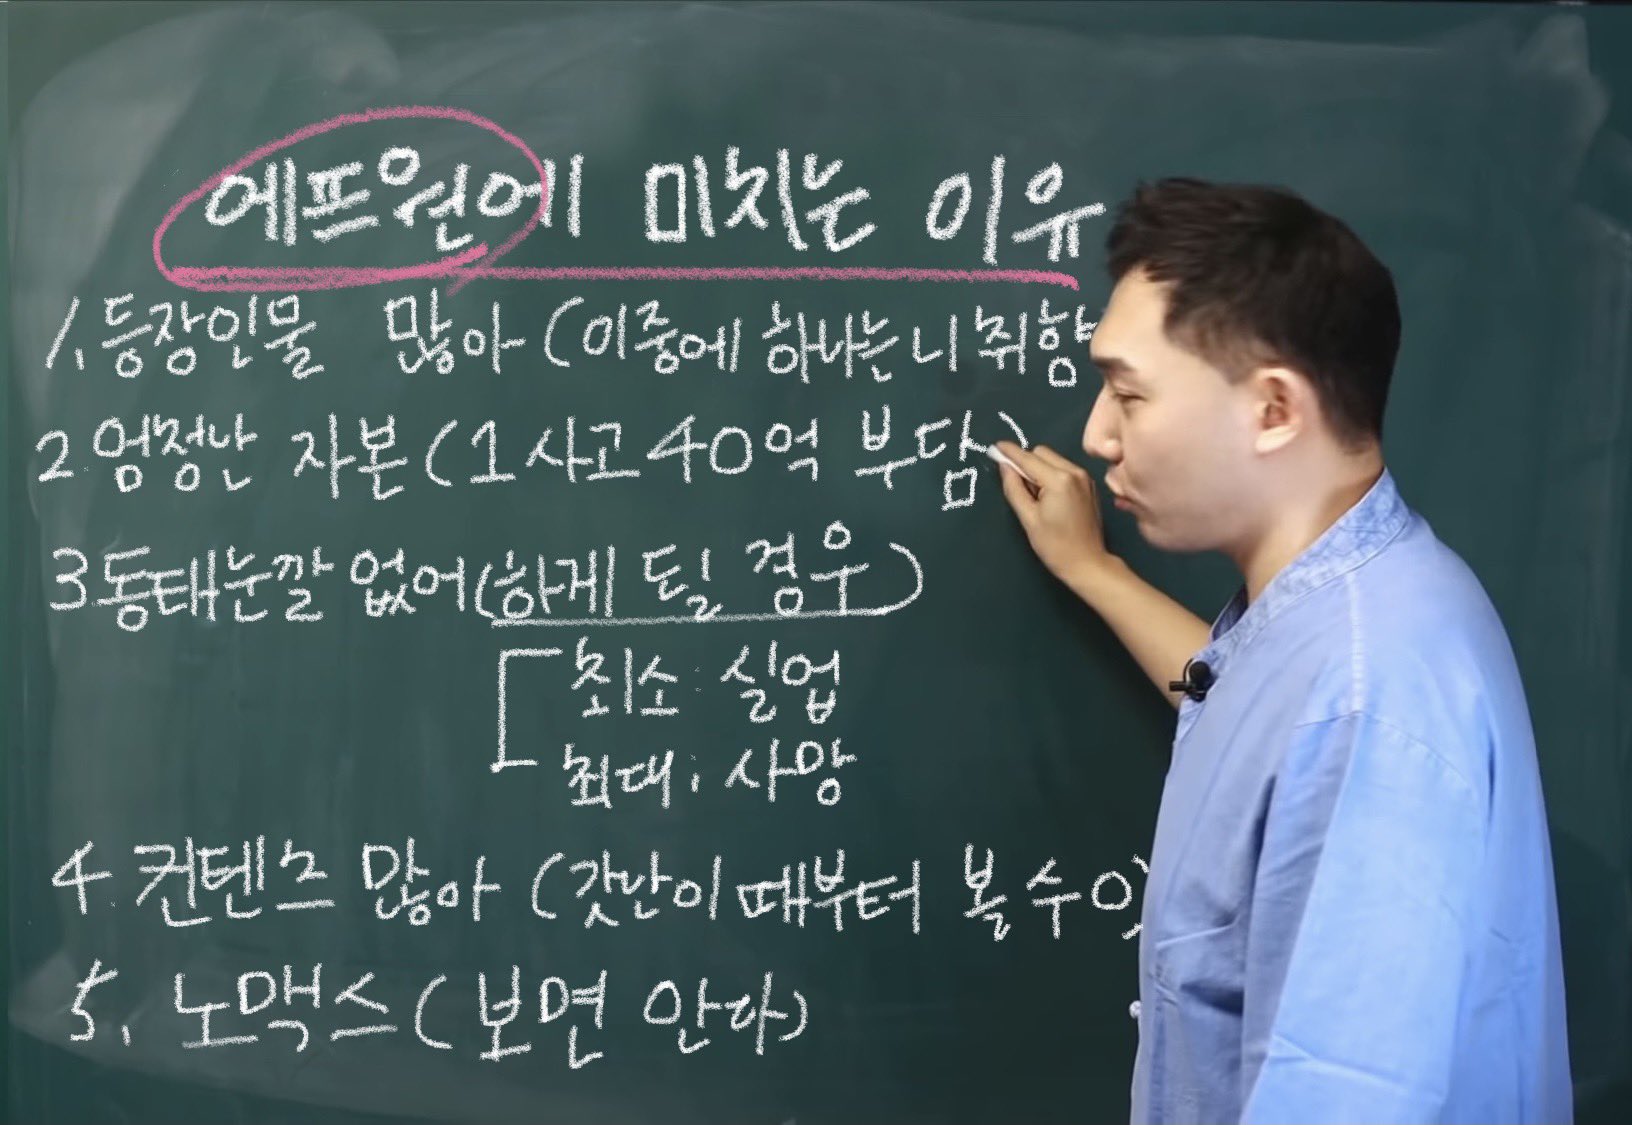 에프원에 미치는 이유
1. 등장인물 많아 (이중에 하나는 니 취향
2. 엄청난 자본 (1사고 40억 부담)
3. 동태눈깔 없어 (하게 될 경우)
최소: 실업
최대: 사망
4. 컨텐츠 많아 (갓난이 때부터 볼 수 O)
5. 노맥스 (보면 안다)